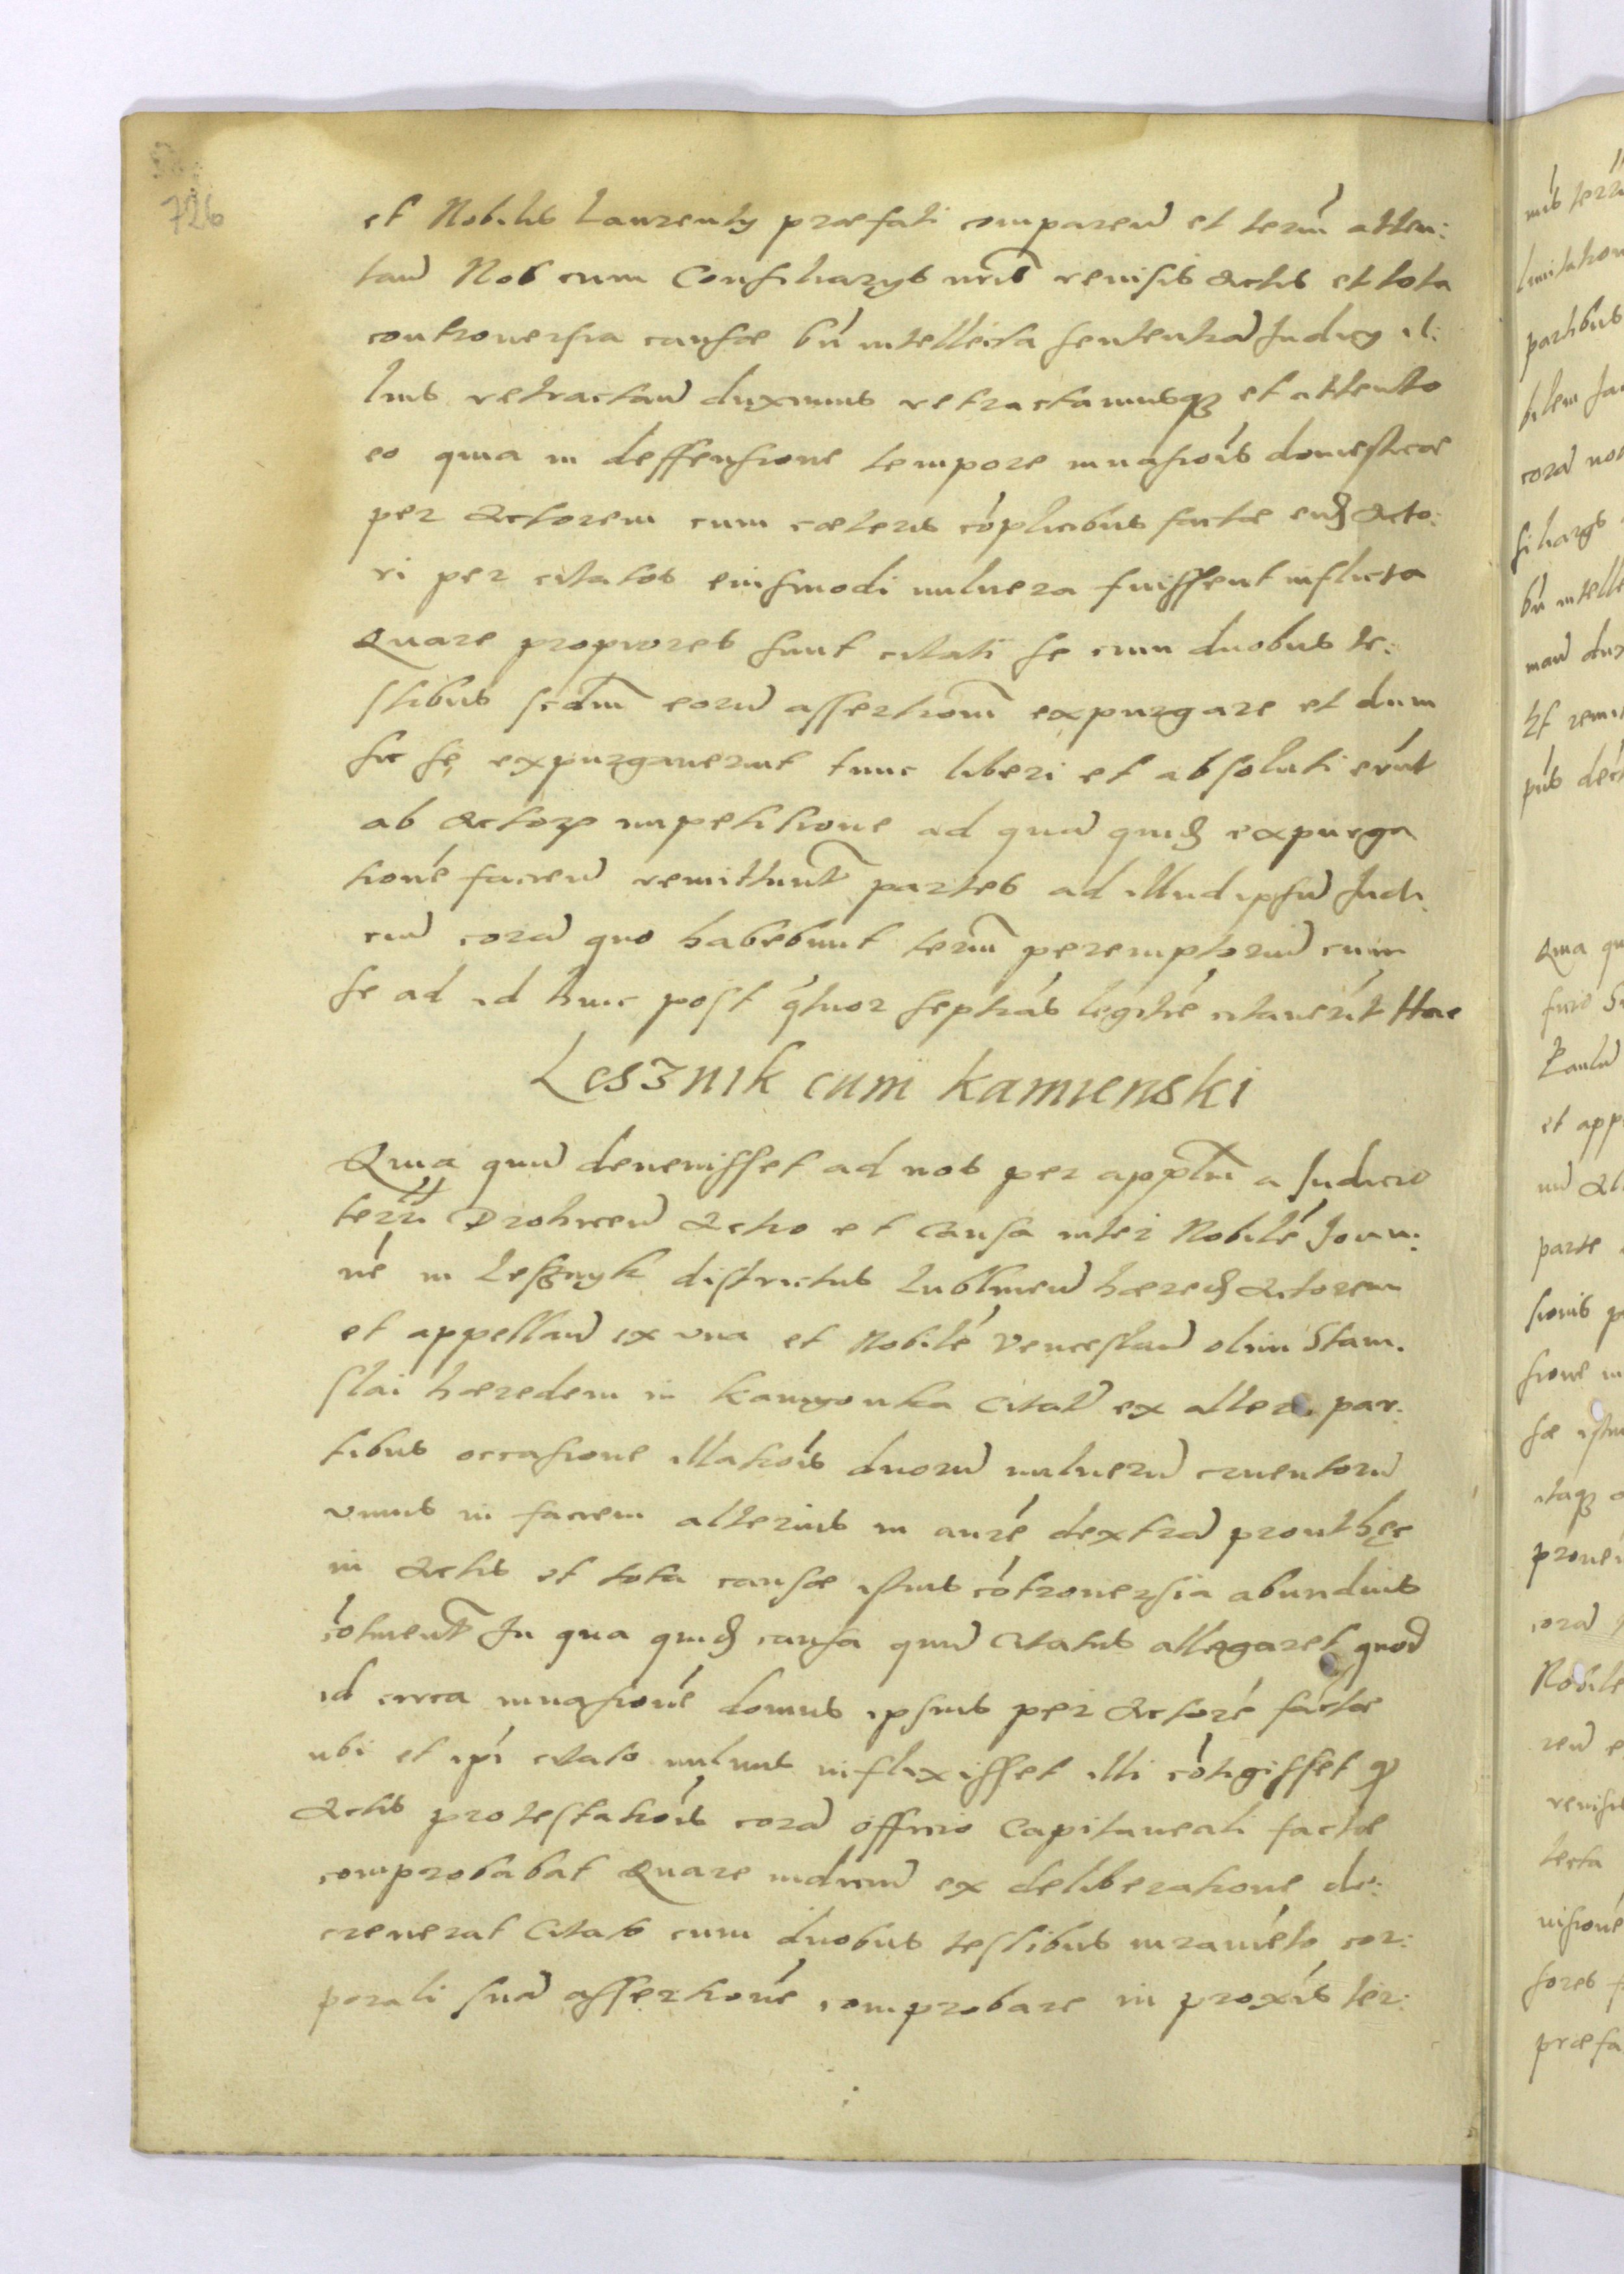 726
et Nobilis Laurenty præfati comparen et term̃ atten:
tan̄ Nos cum Consiliarys nr̃is reuisis Actis et tota
controuersia causæ bn̄ intellecta sententiā Iudicy il:
lius retractan̄ duximus retractamusq3 et attento
eo quia in deffensione tempore inuasiōis domesticæ
per Actorem cum cæteris cōplicibus factæ eid Acto:
ri per citatos eiusmodi uulnera fuissent inflicta
Quare propiores sunt citati se cum duobus te:
stibus scdm̃ eorū assertionem̃ expurgare et dum
sic se expurgauerint tunc liberi et absoluti erūt
ab Actoris impetitione ad quā quid expurga
tionē facien̄ remittunt̃ partes ad illud ipsū Iudi:
ciū corā quo habebunt term̃ peremptoriū cum
se ad id hinc post q̄tuor septiās legitē citauerīt Hac
Lesznik cum kamienski
Quia quū deuenisset ad nos per appłm̃ a Iudicio
terrī Drohicen̄ Actio et causa inter Nobilē Joan:
nē in Lessznyk districtus Lublinen̄ hæred Actorem
et appellan̄ ex vna et Nobilē Venceslaū olim Stani.
slai hæredem in kamyonka Citat̄ ex altera par:
tibus occasione illatiōis duorū uulnerū cruentorū
vnius in faciem alterius in aurē dextrā prout hęc
in Actis et tota causæ istius cōtrouersia abundius
cōtinent̃ In qua quid causa quū Citatus allegaret quod
id circa inuasionē domus ipsius per Actorē factæ
ubi et ipī citato uulnus inflixisset illi cōtigisset qd
Actis protestatiōis corā officio Capitaneali factæ
comprobabat Quare iudiciū ex deliberatione de:
creuerat Citato cum duobus testibus iuramēto cor:
porali suā assertionē comprobare in proxīs ter: